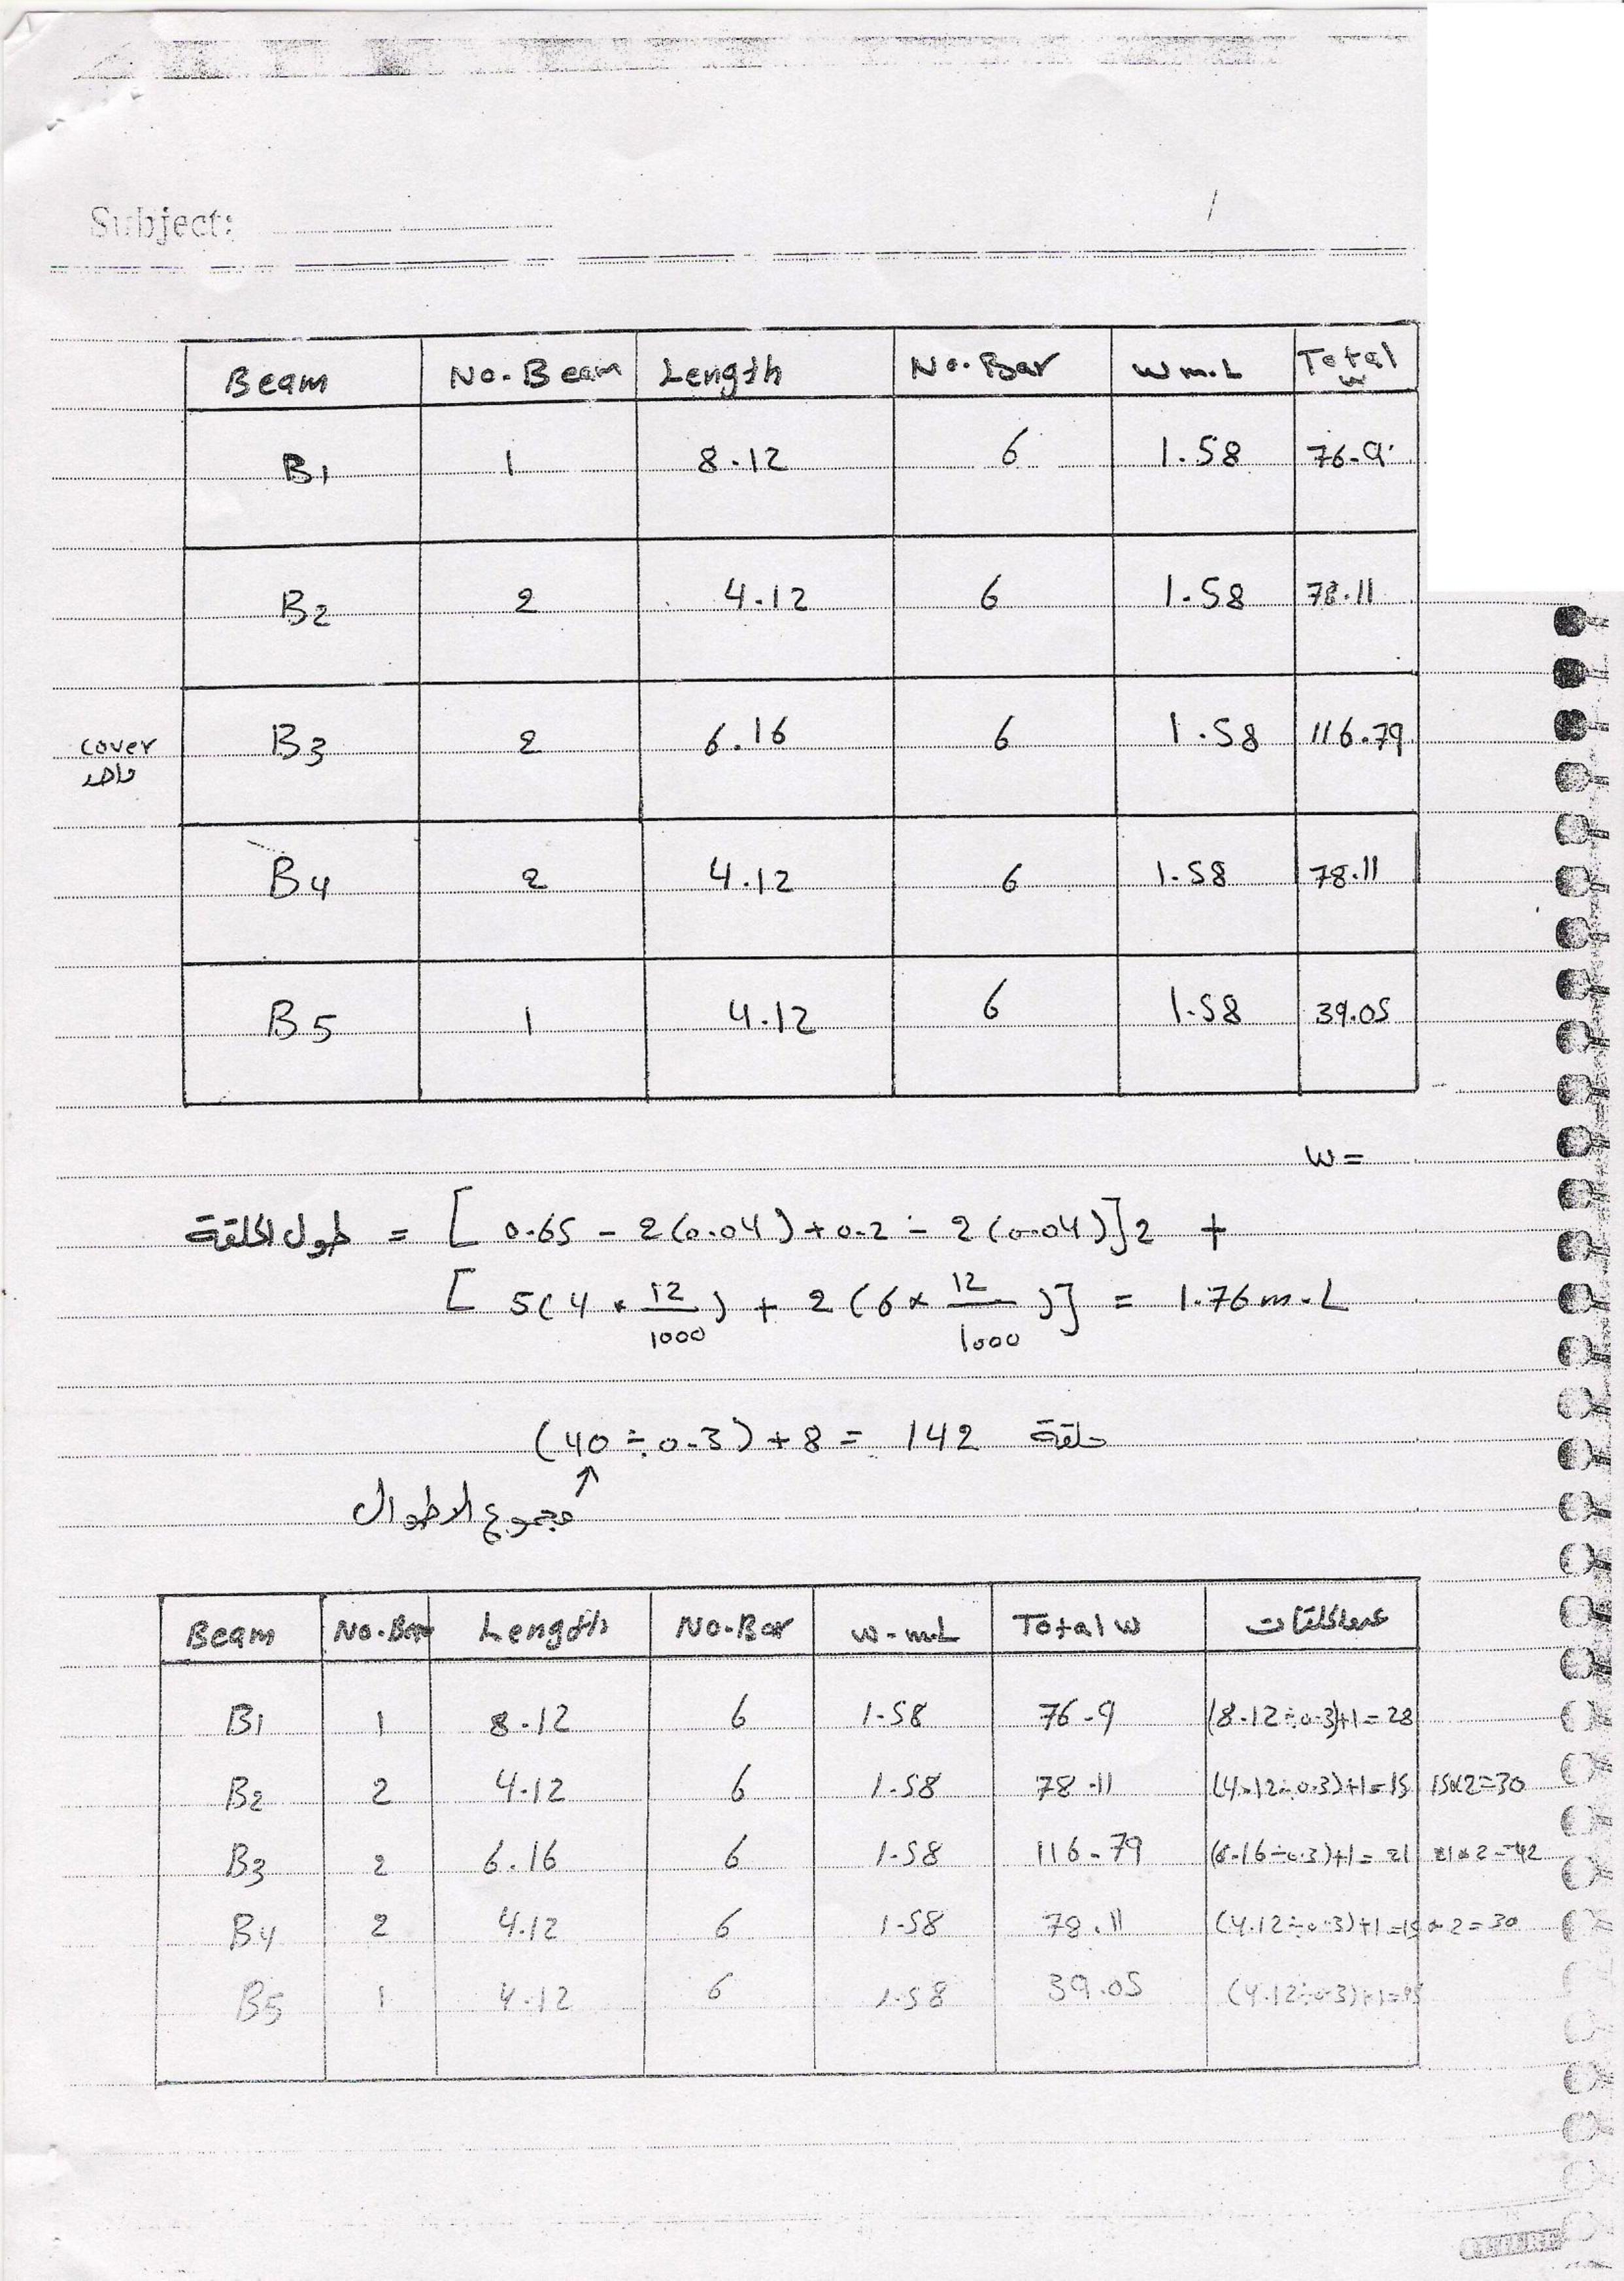 Subject:
Beam No. Beam Length No. Bar W m.L Total w
B1 1 8.12 6 1.58 76.9
B2 2 4.12 6 1.58 78.11
cover واحد B3 2 6.16 6 1.58 116.79
B4 2 4.12 6 1.58 78.11
B5 1 4.12 6 1.58 39.05
W =
طول الحلقة = [ 0.65 - 2(0.04) + 0.2 - 2(0.04)]2 +
[ 5(4 × 12/1000) + 2(6 × 12/1000)] = 1.76 m.L
(40 ÷ 0.3) + 8 = 142 حلقة
↑
مجموع الاطوال
Beam No. Bem Length No. Bar w-m.L Total w عدد الحلقات
B1 1 8.12 6 1.58 76.9 (8.12÷0.3)+1=28
B2 2 4.12 6 1.58 78.11 (4.12÷0.3)+1=15 15×2=30
B3 2 6.16 6 1.58 116.79 (6.16÷0.3)+1=21 21×2=42
B4 2 4.12 6 1.58 78.11 (4.12÷0.3)+1=15×2=30
B5 1 4.12 6 1.58 39.05 (4.12÷0.3)+1=15